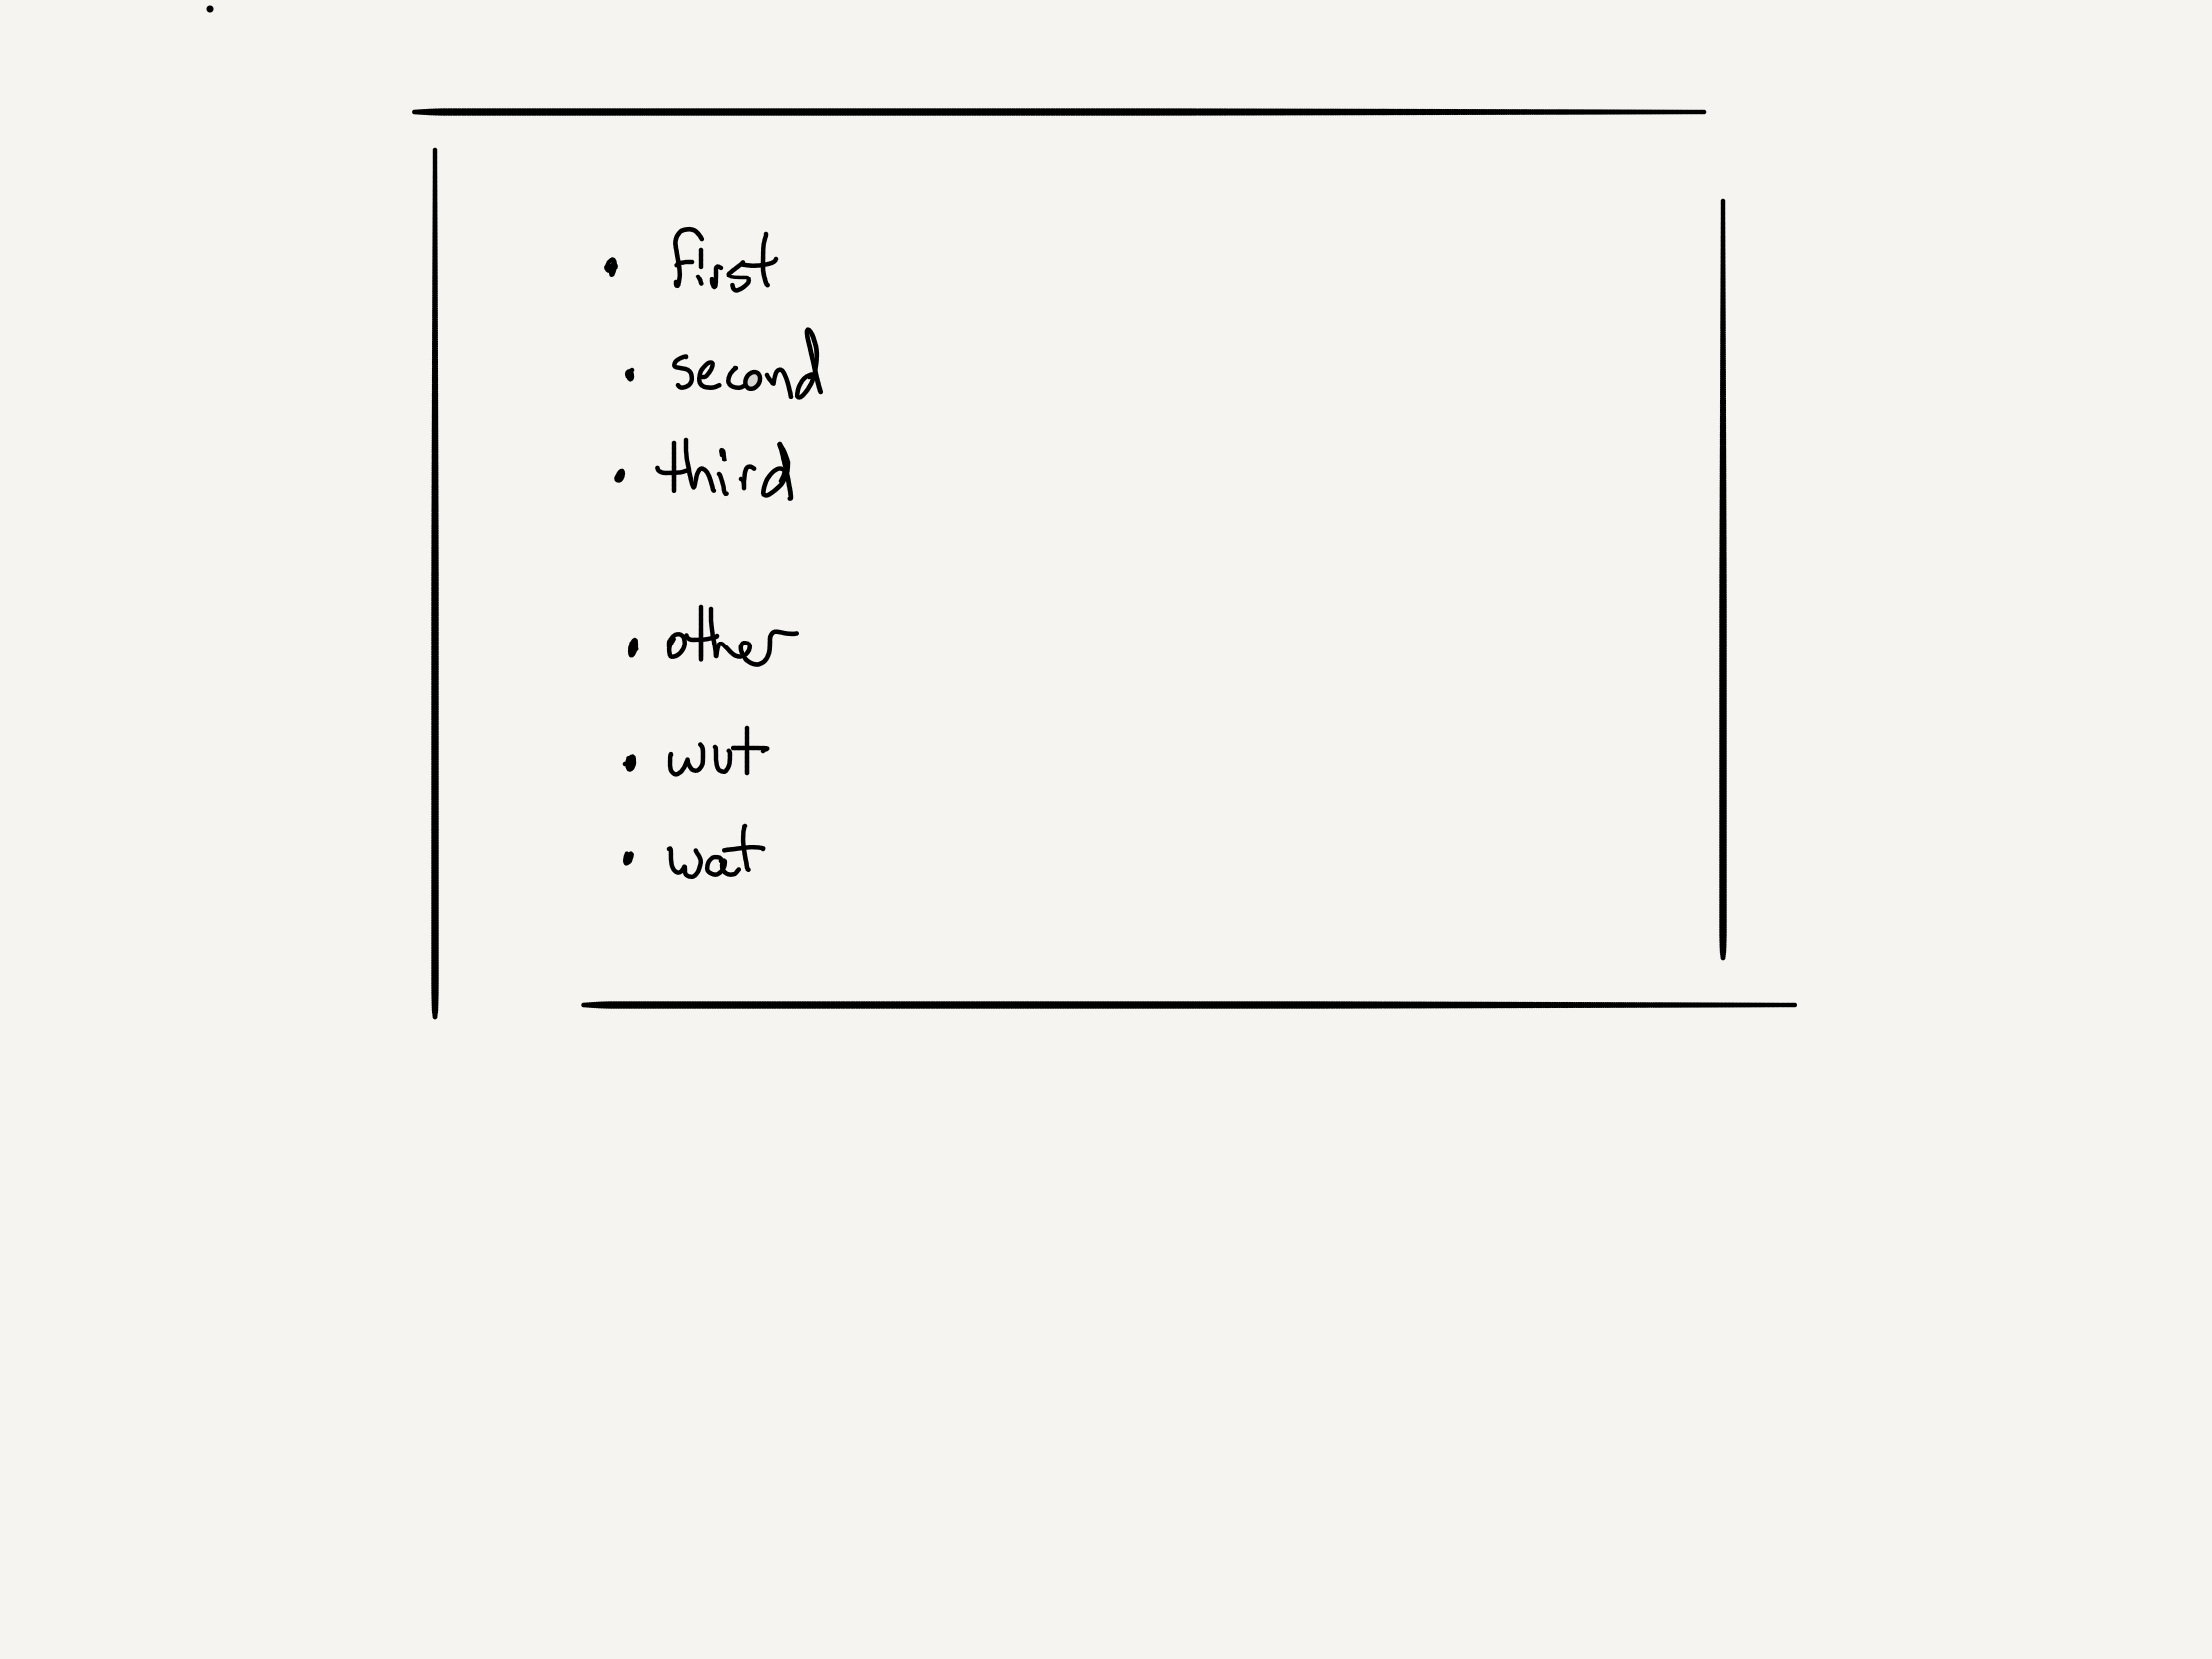 • first
• second
• third
• other
• wut
• wat